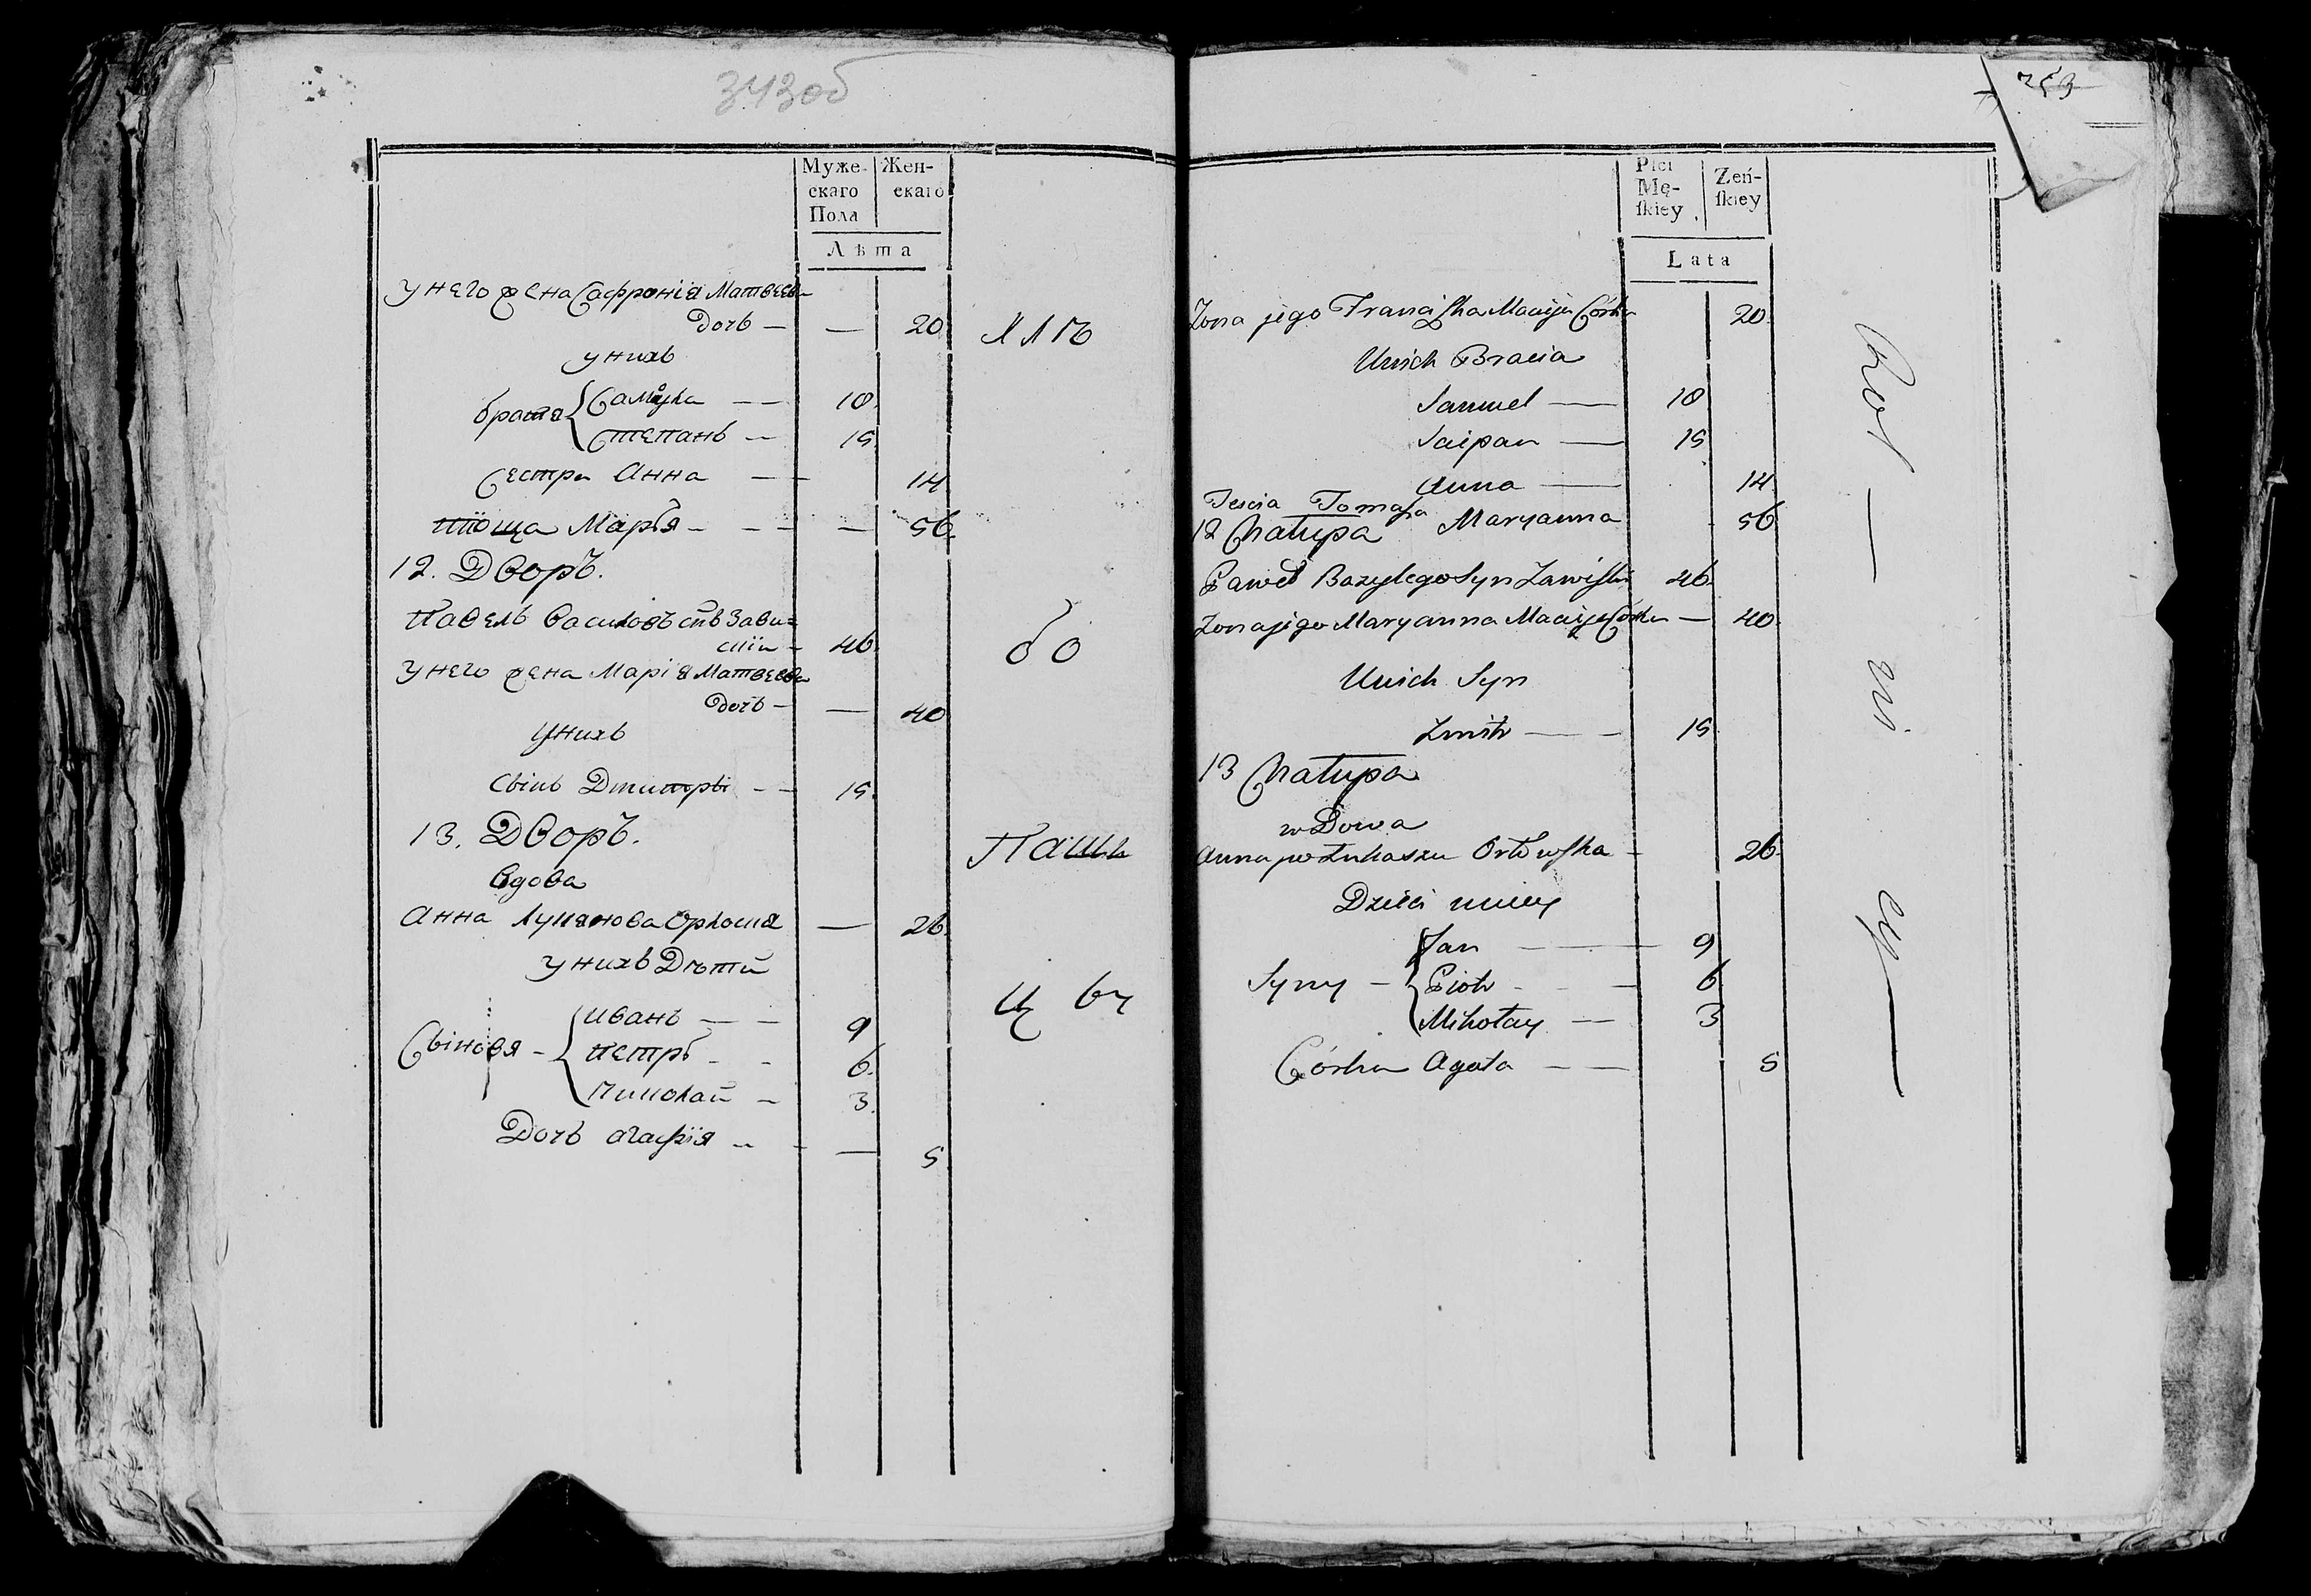 343об
Муже-
скаго
Пола
Жен-
скаго
Лѣта
У него жена Сафронія Матвеева
дочь — — 20
у нихъ
братя { Самуйла — — 18
Степанъ — 15
Сестра Анна — — 14
тюща Маръя — — — — 56.
12. Дворъ.
Павелъ Васильовъ снъ Зави=
сскій — 46
У него жена Марія Матвеева
дочь — — 40
У нихъ
Сынъ Дмитръ — — 15.
13. Дворъ.
Вдова
Анна Лукянова — 26.
У нихъ Дѣти
Сыновя — { Иванъ — — 9
Петръ — — 6.
Николай — 3.
Дочь Агафія — — — 5
бо
Płci
Mę-
skiey
Żeń-
skiey
Lata
Zona jego Franciszka Macieja Córka 20.
Unich Bracia
Samuel — 18
Sciepan — 15
Anna — 14
Tescia Tomasza Maryanna 56
12 Chałupa
Paweł Bazylego Syn Zawiski 46.
Zona jego Maryanna Macieja Córka — 40.
Unich Syn
Zmitr — — 15
13 Chałupa
wDowa
Anna po Łukaszu Orłowska — 26.
Dzieci uniey
Syny — { Jan — — 9
Piotr — — 6
Mikołay — 3
Córka Agata — — 5